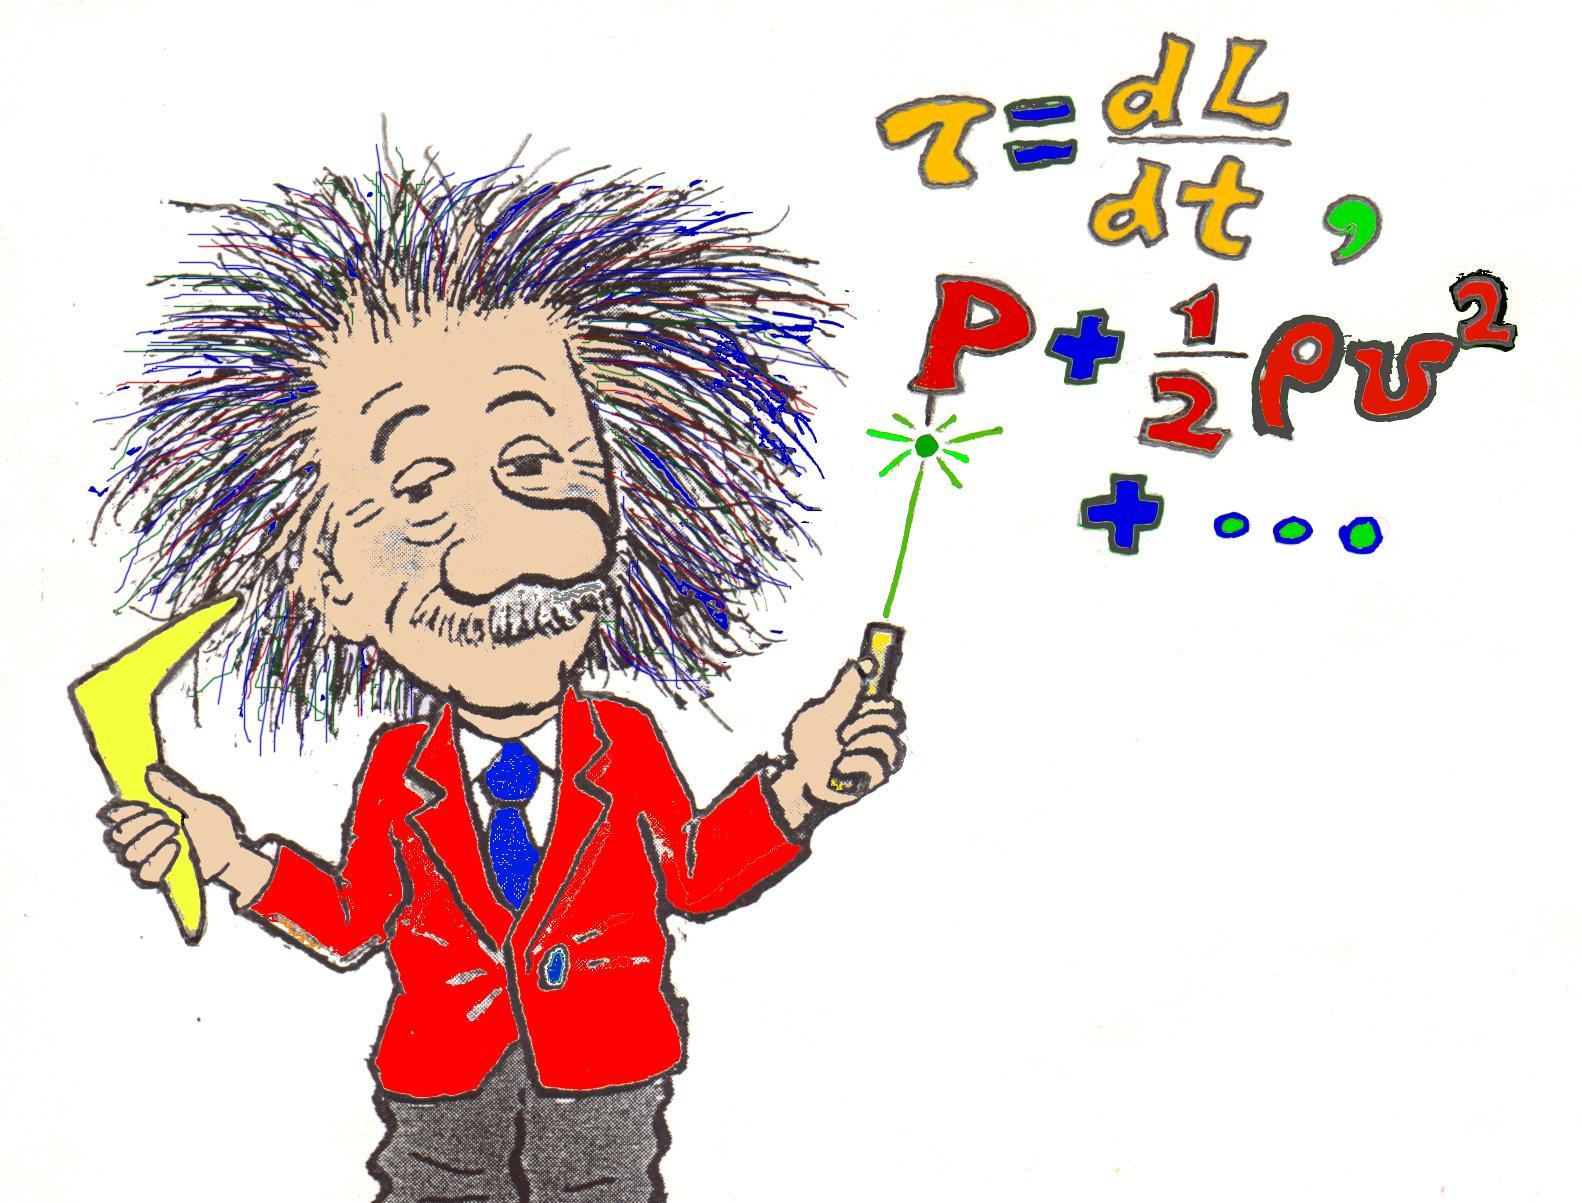 τ = dL/dt ,
P + 1/2 ρv²
+ ...